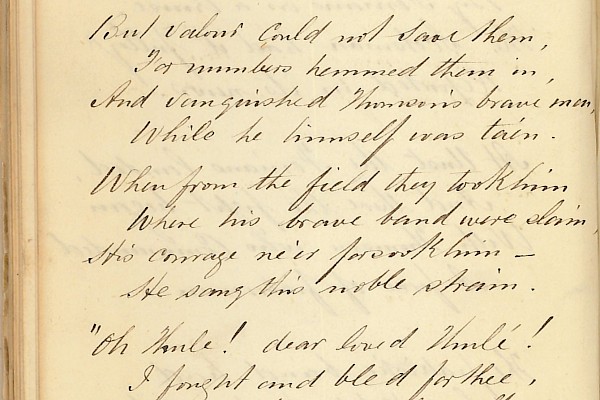 But valour could not save them,
For numbers hemmed them in,
And vanquished Thomson's brave men,
While he himself was ta'en.
When from the field they took him
Where his brave band were slain,
His courage ne'er forsook him —
He sang this noble strain.
"Oh Thulé! dear loved Thulé!
I fought and bled for thee,